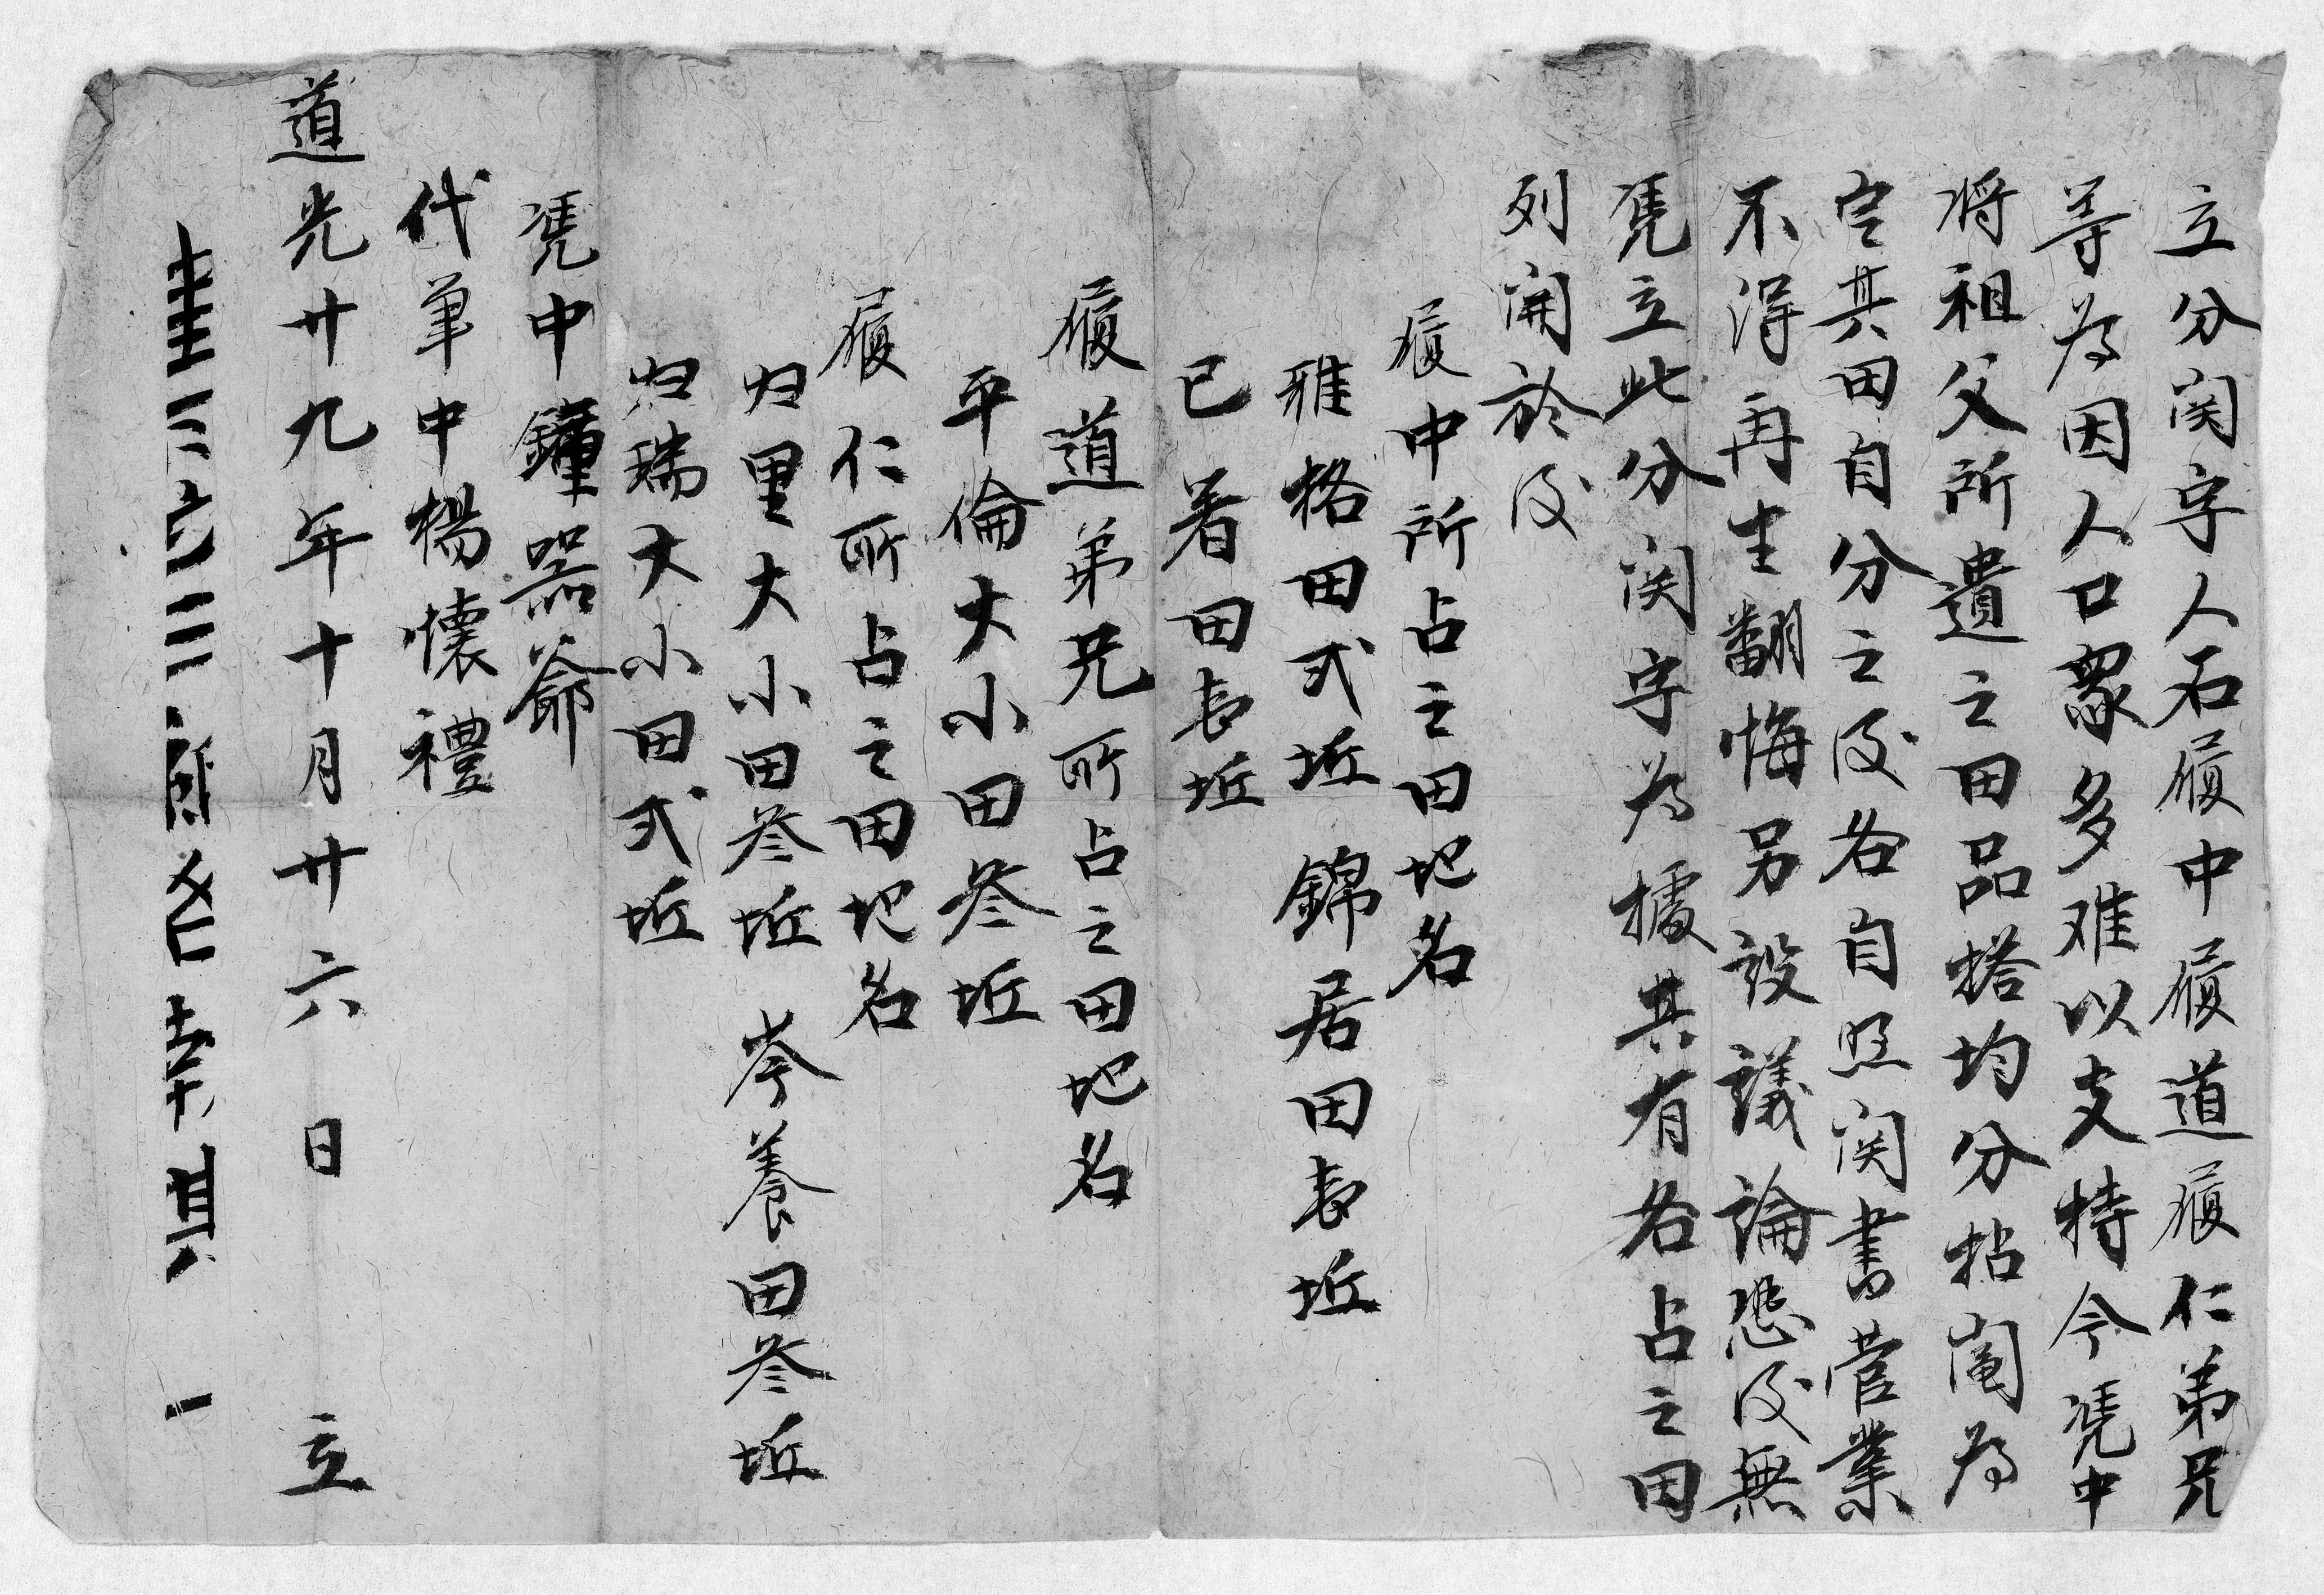 立分関字人石履中履道履仁弟兄
等为因人口衆多难以支持今凭中
将祖父所遺之田品搭均分拈阄为
定其田自分之後各自照関書管業
不得再生翻悔另設議論恐後無
凴立此分関字为據其有各占之田
列開於後
履中所占之田地名
雅格田弍坵 錦居田壹坵
已着田壹坵
履道弟兄所占之田地名
平倫大小田叁坵
履仁所占之田地名
归里大小田叁坵 岑養田叁坵
归瑞大小田弍坵
凭中 鐘器爺
代筆中楊懷禮
道光廿九年十月廿六日 立